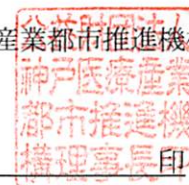 産業都市推進機
公益財団法人
神戸医療産業
都市推進機
構理事長
印